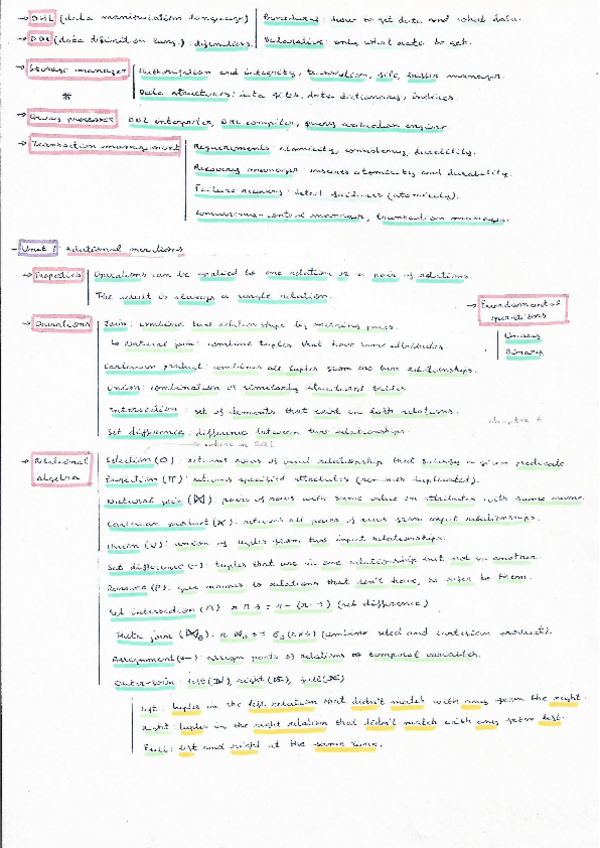 → DML (data manipulation language) | Procedural: how to get data and what data.
→ DDL (data definition lang.): definition. | Declarative: only what data to get.
→ Storage manager | Authorization and integrity, transaction, file, buffer manager.
* | Data structures: data files, data dictionary, indices.
→ Query processor DDL interpreter, DML compiler, query evaluation engine
→ Transaction management | Requirements: atomicity, consistency, durability.
Recovery manager: ensures atomicity and durability.
Failure recovery: detect failures (atomicity).
Concurrency-control manager, transaction manager.
- Unit : relational
→ Properties | Operations can be applied to one relation or a pair of relations.
The result is always a single relation.
→ Fundamental operations
Unary
Binary
→ Operations | Join: combine two relationships by merging pairs.
↳ Natural join: combine tuples that have same attributes
Cartesian product: combines all tuples from the two relationships.
Union: combination of similarly structured tables.
Intersection: set of elements that exist in both relations.
Set difference: difference between two relationships.
chapter 6
→ where in SQL
→ Relational algebra | Selection (σ): returns rows of input relationship that satisfy a given predicate
Projection (π): returns specified attributes (removes duplicates).
Natural join (⋈): pairs of rows with same value in attributes with same name.
Cartesian product (×): returns all pairs of rows from input relationships.
Union (∪): union of tuples from two input relationships.
Set difference (-): tuples that are in one relationship but not in another
Rename (ρ): give names to relations that don't have, to refer to them.
Set intersection (∩) r ∩ s = r - (r - s) (set difference)
Theta join (⋈θ): r ⋈θ s = σθ (r×s) (combine select and cartesian product).
Assignment (←): assign parts of relations to temporal variables.
Outer-join: left (⟕), right (⟖), full (⟗)
Left: tuples in the left relation that didn't match with any from the right.
Right: tuples in the right relation that didn't match with any from left.
Full: left and right at the same time.